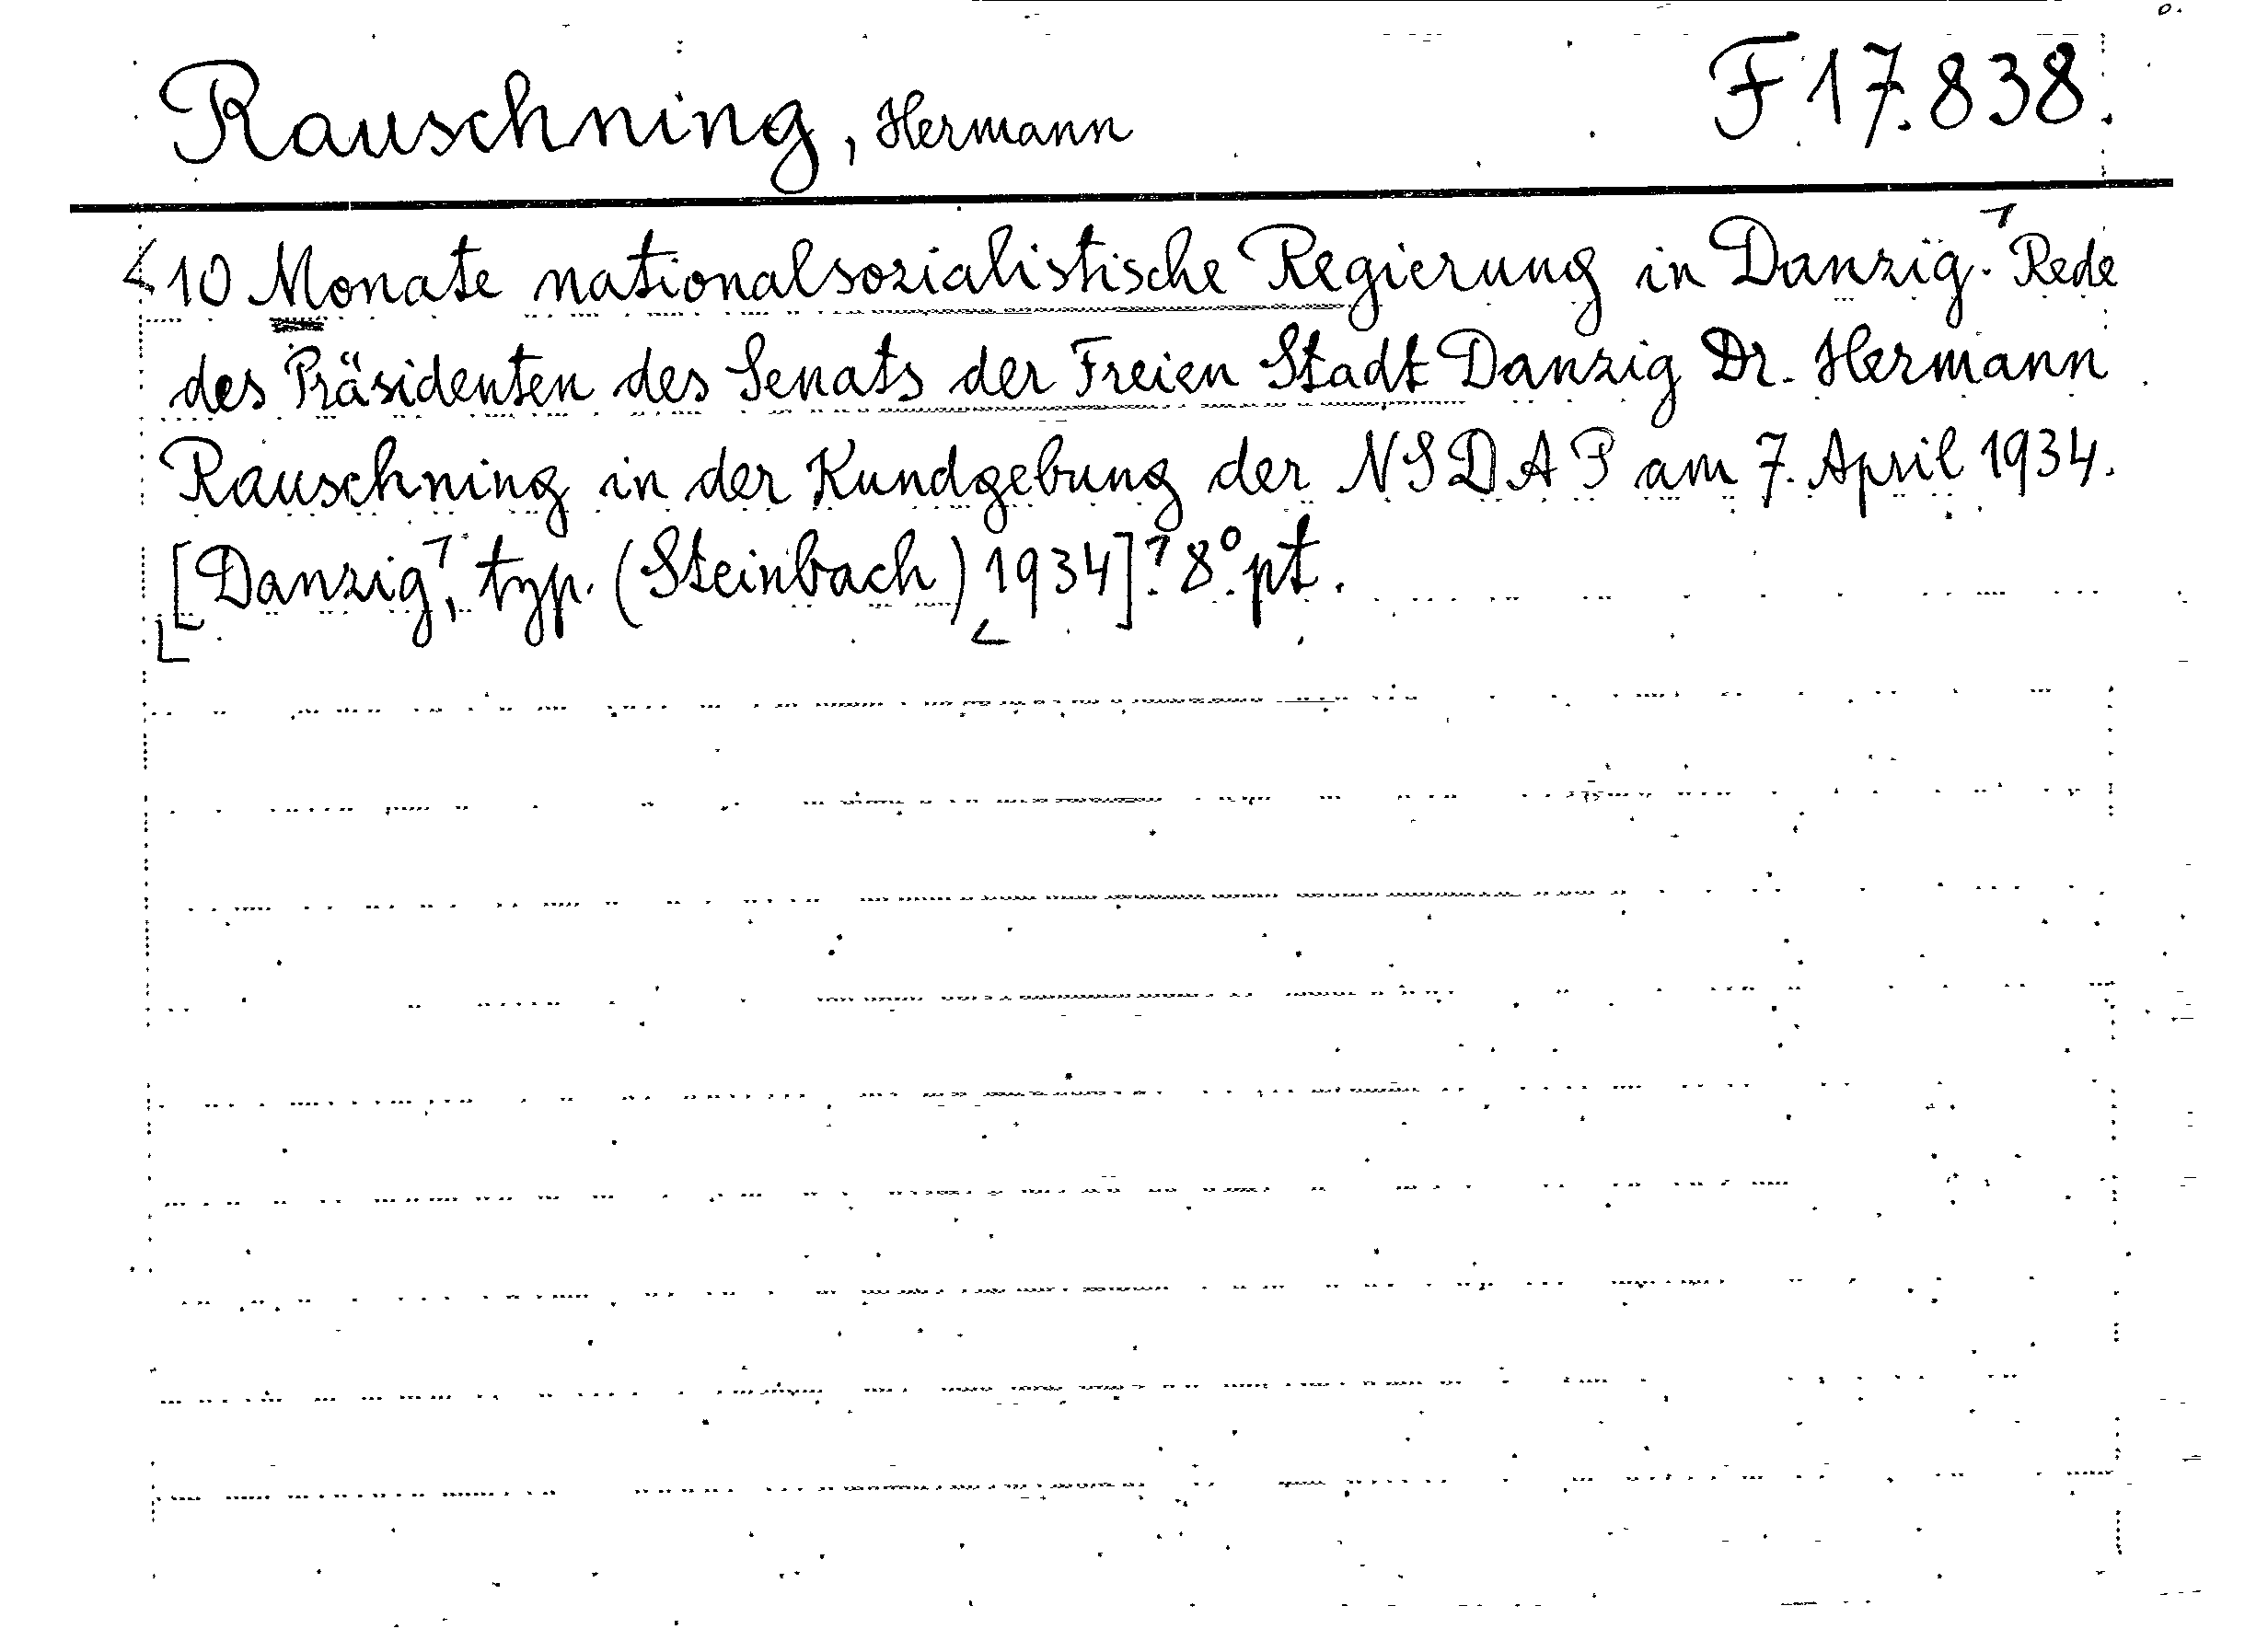 Rauschning, Hermann F 17.838.
10 Monate nationalsozialistische Regierung in Danzig. Rede
des Präsidenten des Senats der Freien Stadt Danzig Dr. Hermann
Rauschning in der Kundgebung der NSDAP am 7. April 1934.
[Danzig, typ. (Steinbach) 1934]. 8° pt.